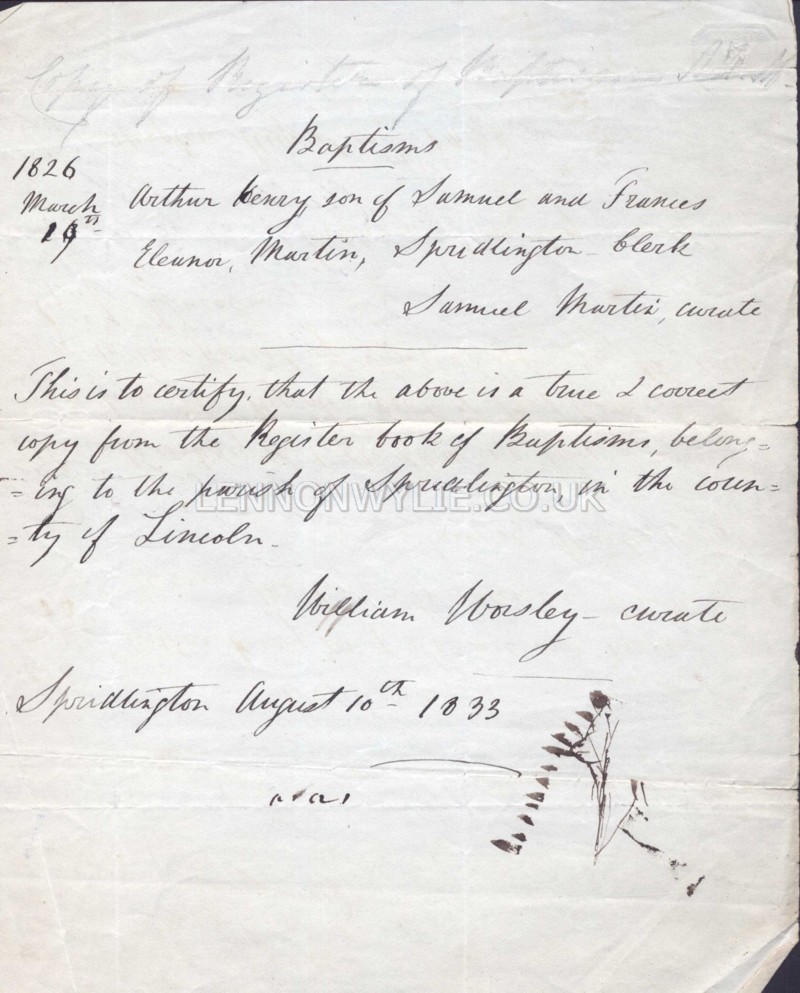 Copy of Register of Baptism
Baptisms
1826
March Arthur Henry, son of Samuel and Frances
19th Eleanor, Martin, Spridlington - Clerk
Samuel Martin, curate
This is to certify, that the above is a true & correct
copy from the Register book of Baptisms, belong=
=ing to the parish of Spridlington, in the coun=
=ty of Lincoln.
LENNONWYLIE.CO.UK
William Worsley - curate
Spridlington August 10th 1833